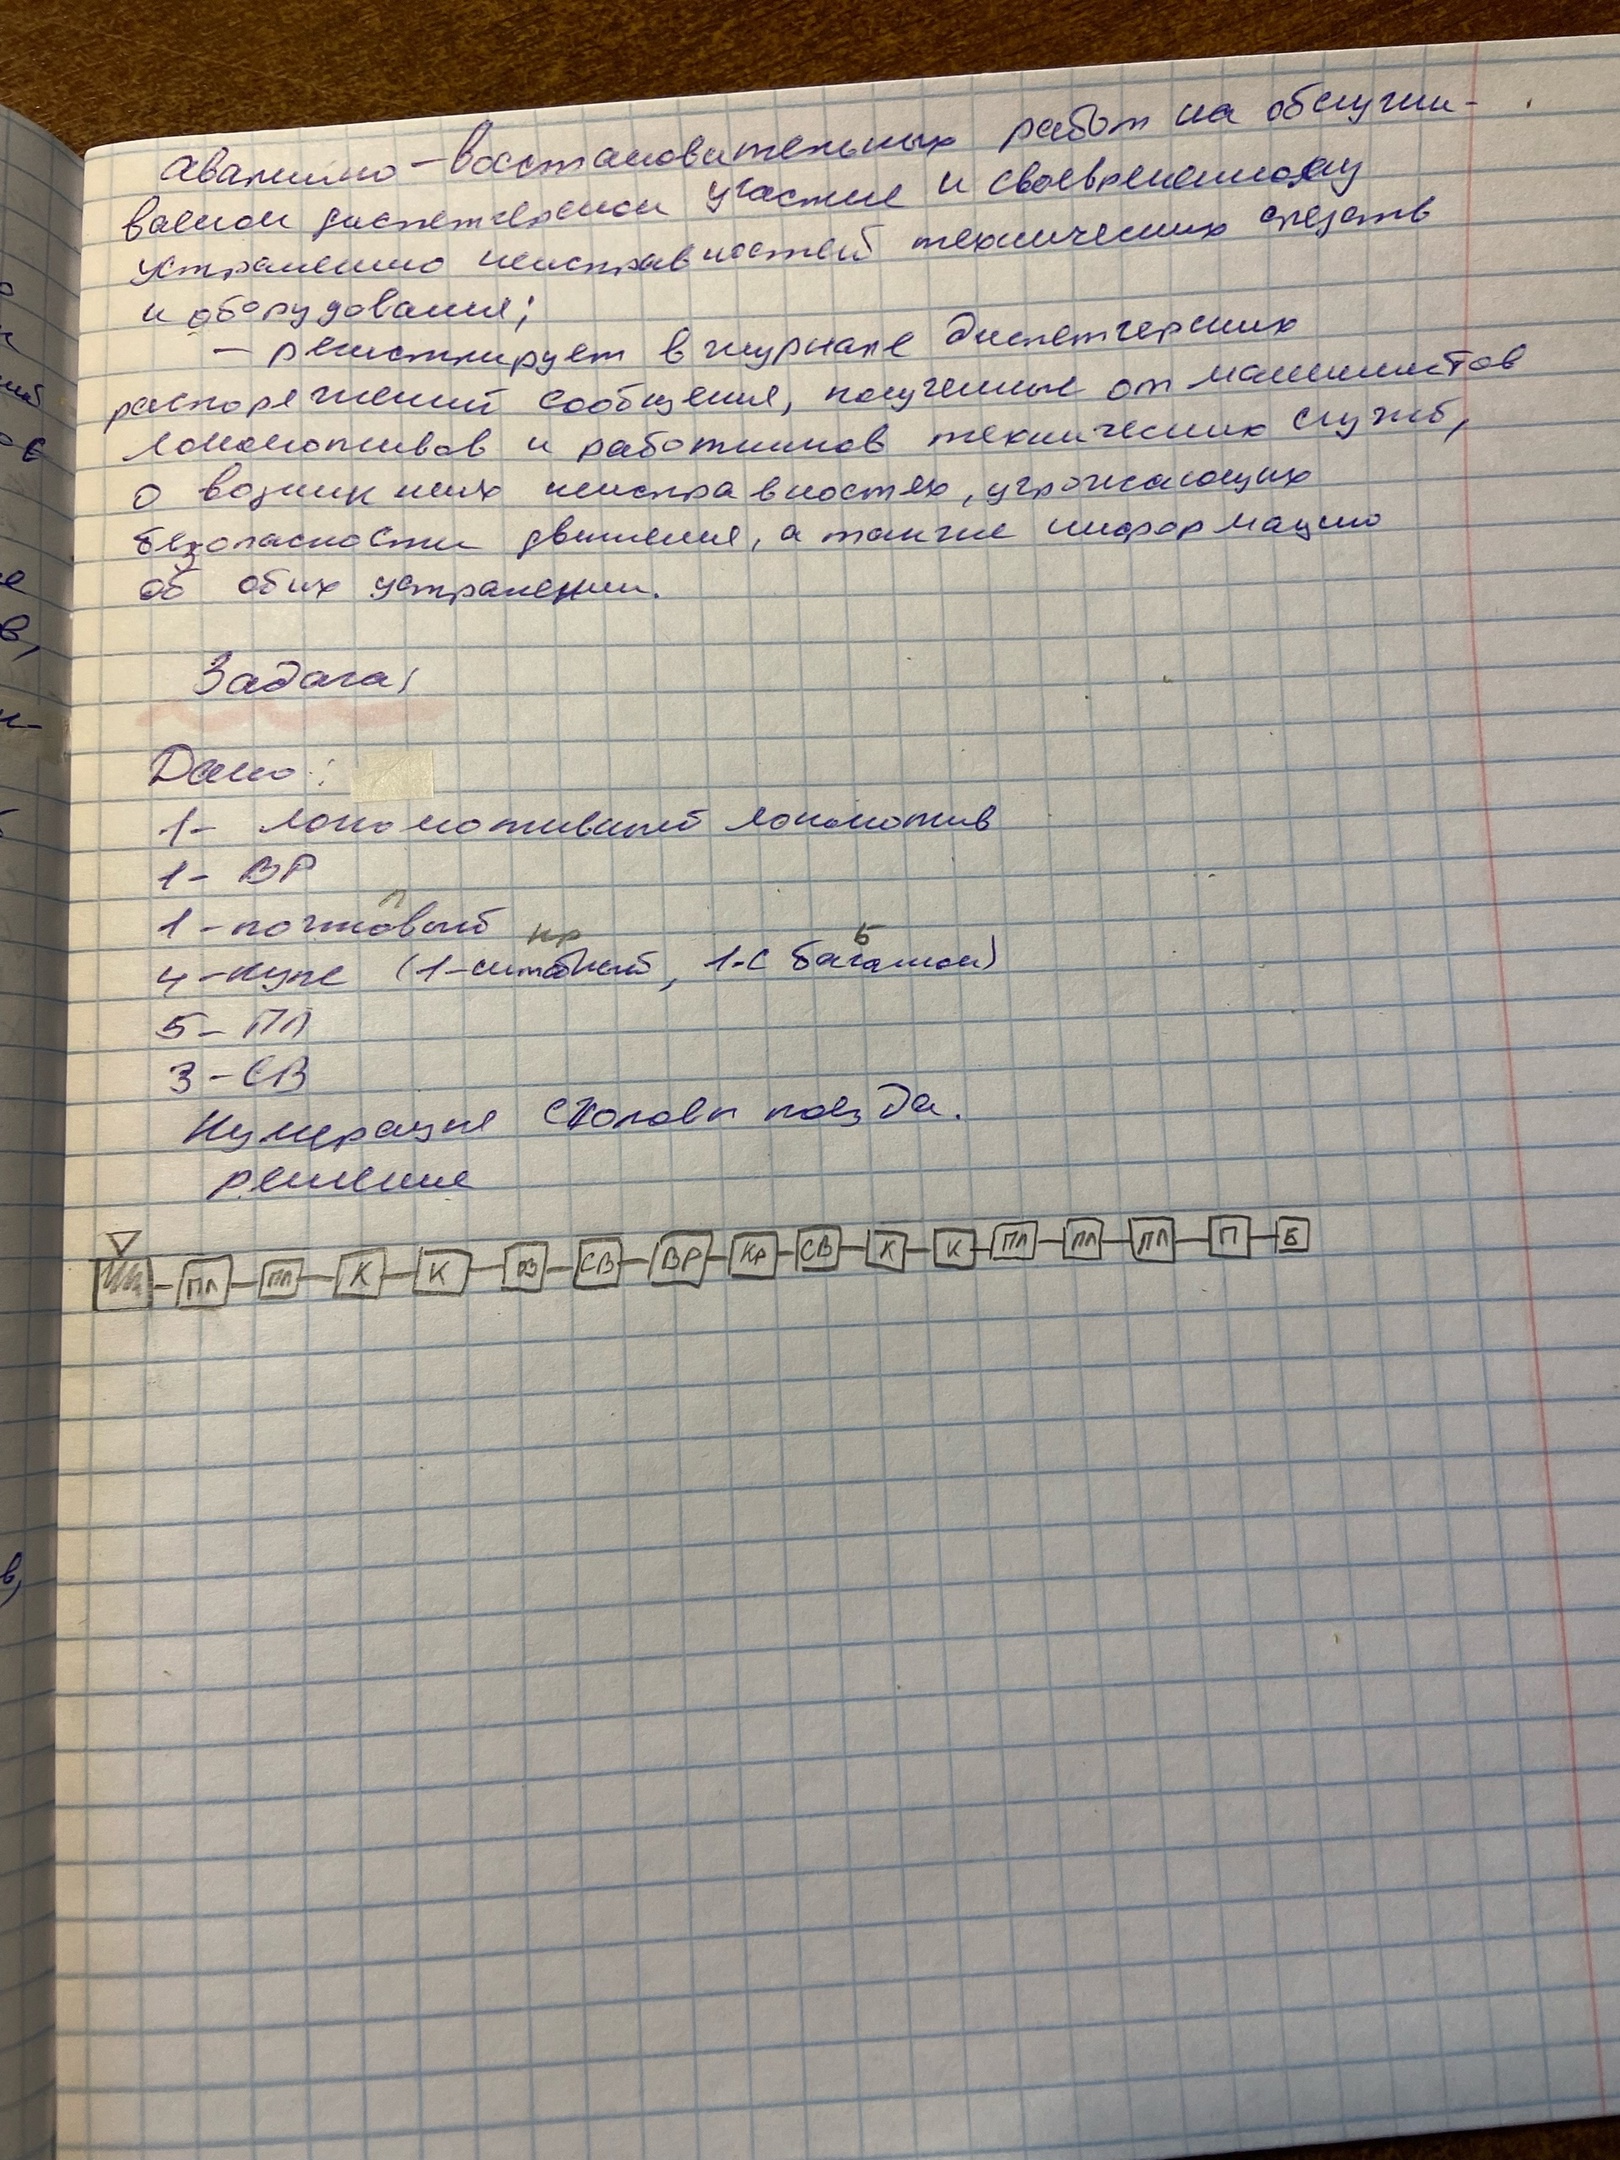 аварийно-восстановительных работ на обслужи-
ваемом диспетчерском участке и своевременному
устранению неисправностей технических средств
и оборудования;
— регистрирует в журнале диспетчерских
распоряжений сообщения, полученные от машинистов
локомотивов и работников технических служб,
о возникших неисправностях, угрожающих
безопасности движения, а также информацию
об обих устранении.
Задача:
Дано:
1- локомотивный локомотив
1- ВР
п
1- почтовый
кр Б
4- купе (1-штабной, 1-с багажом)
5- ПЛ
3- СВ
Нумерация с головы поезда.
решение
ПЛ ПЛ К К СВ СВ ВР Кр СВ К К ПЛ ПЛ ПЛ П Б